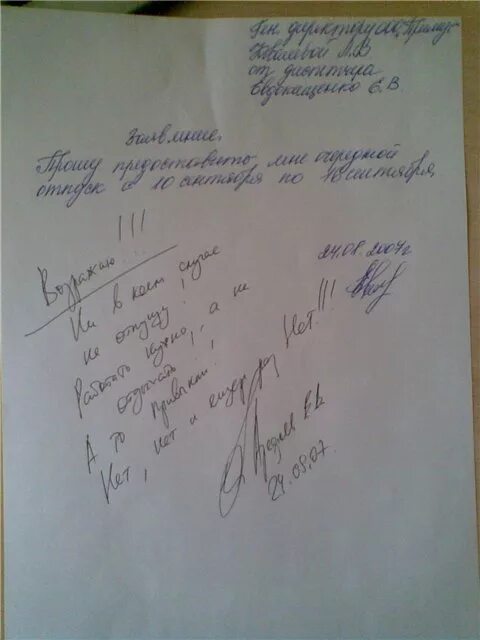 Ген. директору ООО "Пример"
Ковалевой Л.В
от диспетчера
Евдокащенко Е.В.
Заявление.
Прошу предоставить мне очередной
отпуск с 10 сентября по 18 сентября
24.08.2007г
Возражаю !!!
Ни в коем случае
не отпущу !
Работать нужно, а не
отдыхать !
А то привыкли !
Нет, нет и ещё раз Нет!!!
Е.В.
24.08.07